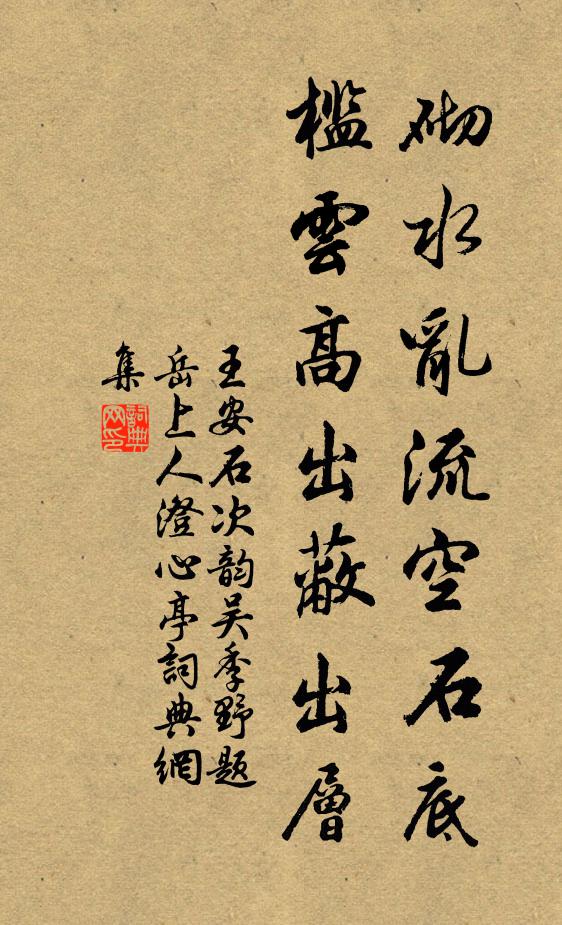 砌水亂流空石底
檻雲高出蔽出層
王安石次韵吴季野题
岳上人澄心亭詞典網
集
詞典网印